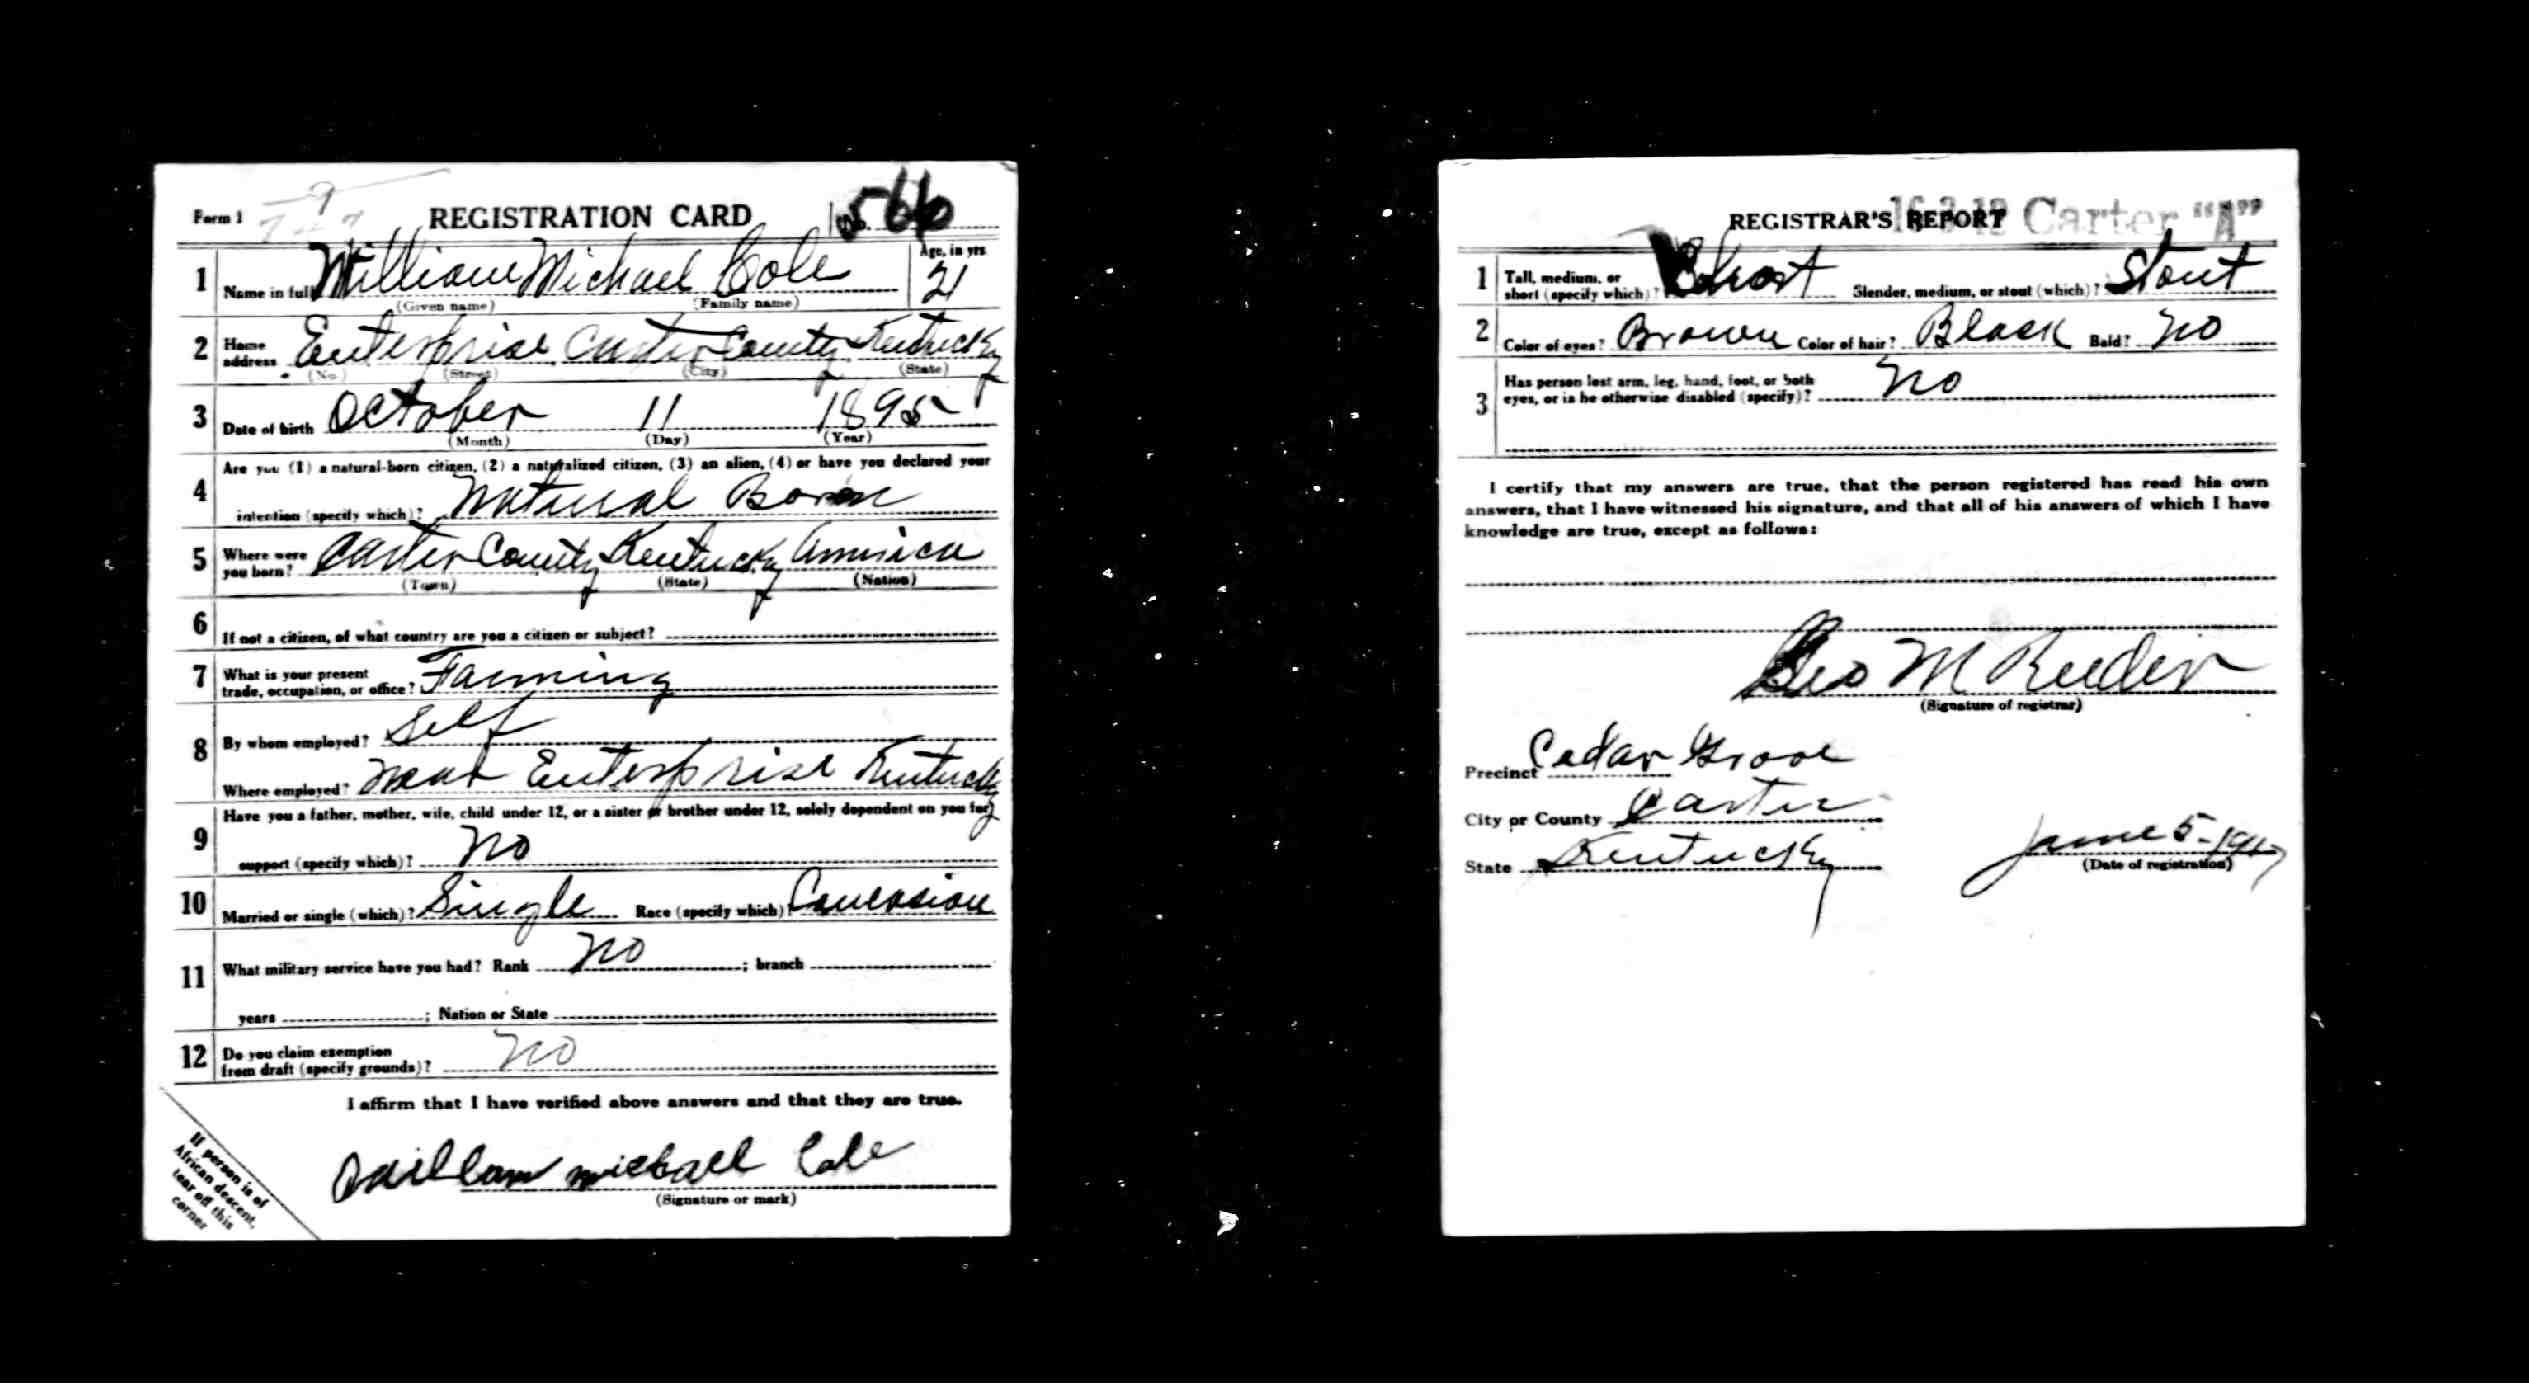 Form 1
REGISTRATION CARD
No. 566
1 Name in full William Michael Cole
(Given name) (Family name)
Age, in yrs
21
2 Home address Enterprise Carter County Kentucky
(No.) (Street) (City) (State)
3 Date of birth October 11 1895
(Month) (Day) (Year)
Are you (1) a natural-born citizen, (2) a naturalized citizen, (3) an alien, (4) or have you declared your
4 intention (specify which)? Natural Born
5 Where were you born? Carter County Kentucky America
(Town) (State) (Nation)
6 If not a citizen, of what country are you a citizen or subject?
7 What is your present
trade, occupation, or office? Farming
8 By whom employed? Self
Where employed? Near Enterprise Kentucky
Have you a father, mother, wife, child under 12, or a sister or brother under 12, solely dependent on you for
9 support (specify which)? No
10 Married or single (which)? Single Race (specify which)? Caucasian
11 What military service have you had? Rank No ; branch
years ; Nation or State
12 Do you claim exemption
from draft (specify grounds)? No
I affirm that I have verified above answers and that they are true.
William michael Cole
(Signature or mark)
If person is of
African descent,
tear off this
corner
REGISTRAR'S REPORT Carter "A"
1 Tall, medium, or
short (specify which)? Short Slender, medium, or stout (which)? Stout
2 Color of eyes? Brown Color of hair? Black Bald? No
3 Has person lost arm, leg, hand, foot, or both
eyes, or is he otherwise disabled (specify)? No
I certify that my answers are true, that the person registered has read his own
answers, that I have witnessed his signature, and that all of his answers of which I have
knowledge are true, except as follows:
Geo M Reeder
(Signature of registrar)
Precinct Cedar Grove
City or County Carter
State Kentucky
June 5-1917
(Date of registration)